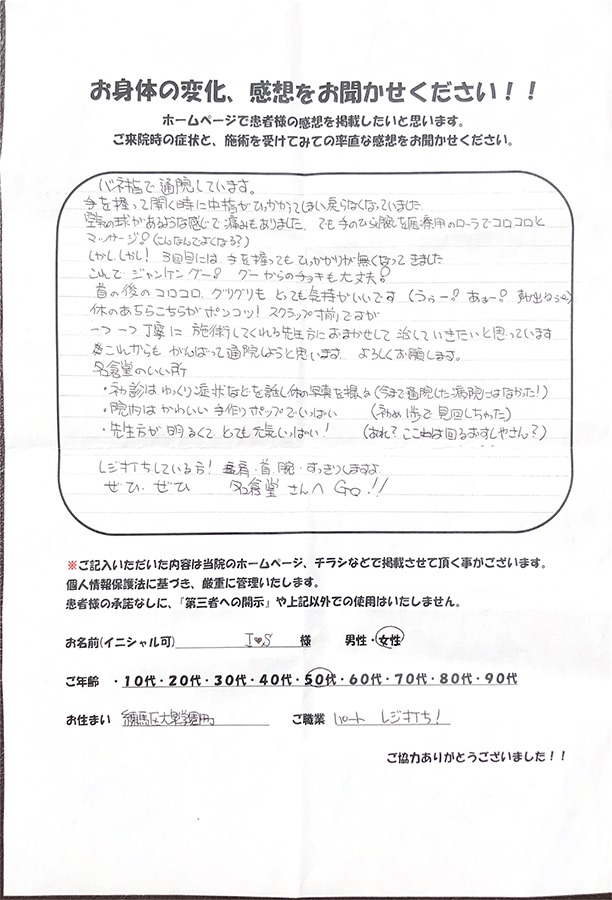 お身体の変化、感想をお聞かせください！！
ホームページで患者様の感想を掲載したいと思います。
ご来院時の症状と、施術を受けてみての率直な感想をお聞かせください。
バネ指で通院しています。
手を握って開く時に中指がひっかかってしまい戻らなくなっていました
空気の球があるような感じで痛みもありました。でも手のひら、腕を医療用のローラでコロコロと
マッサージ!(こんなんでよくなる?)
しかし しかし! 3回目には、手を握ってもひっかかりが無くなってきました
これで ジャンケン グー! グーからのチョキも大丈夫!
首の後のコロコロ、グリグリも とっても気持がいいです (うぅー! あぁー!
体のあちらこちらがポンコツ! スクラップ寸前ですが
一つ一つ丁寧に 施術してくれる先生方におまかせして 治していきたいと思っています
これからも がんばって通院しようと思います。よろしくお願します。
名倉堂のいい所
・初診はゆっくり症状などを話し体の写真を撮る(今まで通院した病院にはなかった!)
・院内はかわいい手作りポップでいっぱい (初め 見回しちゃった)
・先生方が明るくてとても元気いっぱい! (あれ? ここは回るおすしやさん?)
レジ打ちしている方! 肩・首・腕・すっきりしますよ
ぜひ、ぜひ 名倉堂さんへ GO!!
※ご記入いただいた内容は当院のホームページ、チラシなどで掲載させて頂く事がございます。
個人情報保護法に基づき、厳重に管理いたします。
患者様の承諾なしに、「第三者への開示」や上記以外での使用はいたしません。
お名前(イニシャル可) I♥S 様 男性・女性
ご年齢 ・10代・20代・30代・40代・50代・60代・70代・80代・90代
お住まい 練馬区大泉学園町 ご職業 パート レジ打ち!
ご協力ありがとうございました！！